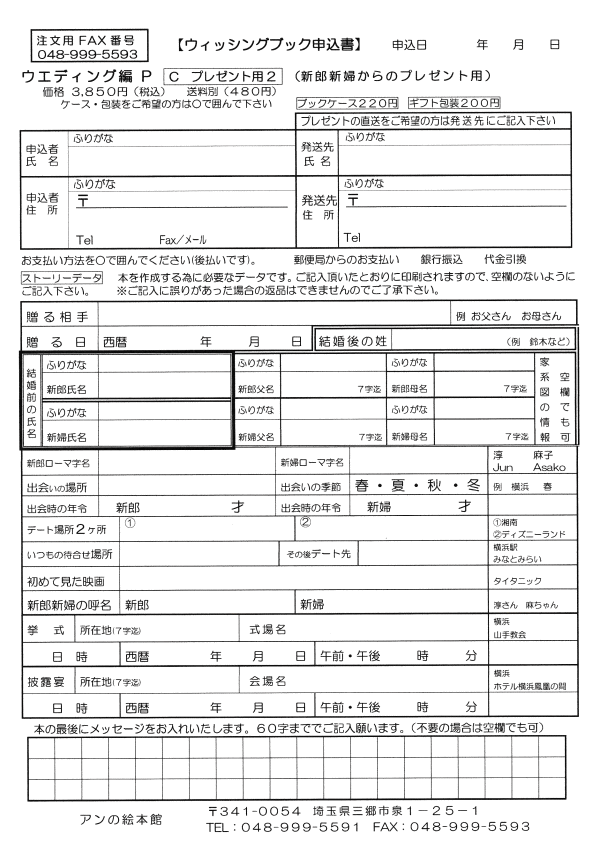 注文用 FAX 番号
048-999-5593
【ウィッシングブック申込書】 申込日 年 月 日
ウエディング編 P C プレゼント用2 (新郎新婦からのプレゼント用)
価格 3,850円(税込) 送料別(480円)
ケース・包装をご希望の方は○で囲んで下さい ブックケース220円 ギフト包装200円
プレゼントの直送をご希望の方は発送先にご記入下さい
申込者 氏 名 ふりがな 発送先 氏 名 ふりがな
申込者 住 所 ふりがな 〒 発送先 住 所 ふりがな 〒
Tel Fax/メール Tel
お支払い方法を○で囲んでください(後払いです)。 郵便局からのお支払い 銀行振込 代金引換
ストーリーデータ 本を作成する為に必要なデータです。ご記入頂いたとおりに印刷されますので、空欄のないように
ご記入下さい。 ※ご記入に誤りがあった場合の返品はできませんのでご了承下さい。
贈る相手 例 お父さん お母さん
贈 る 日 西暦 年 月 日 結婚後の姓 (例 鈴木など)
結婚前の氏名 ふりがな ふりがな ふりがな 家系図の情報 空欄でも可
新郎氏名 新郎父名 7字迄 新郎母名 7字迄
ふりがな ふりがな ふりがな
新婦氏名 新婦父名 7字迄 新婦母名 7字迄
新郎ローマ字名 新婦ローマ字名 淳 麻子
Jun Asako
出会いの場所 出会いの季節 春・夏・秋・冬 例 横浜 春
出会時の年令 新郎 才 出会時の年令 新婦 才
デート場所2ヶ所 ① ② ①湘南
②ディズニーランド
いつもの待合せ場所 その後デート先 横浜駅
みなとみらい
初めて見た映画 タイタニック
新郎新婦の呼名 新郎 新婦 淳さん 麻ちゃん
挙 式 所在地(7字迄) 式場名 横浜
山手教会
日 時 西暦 年 月 日 午前・午後 時 分
披露宴 所在地(7字迄) 会場名 横浜
ホテル横浜鳳凰の間
日 時 西暦 年 月 日 午前・午後 時 分
本の最後にメッセージをお入れいたします。60字まででご記入願います。(不要の場合は空欄でも可)
アンの絵本館 〒341-0054 埼玉県三郷市泉1-25-1
TEL:048-999-5591 FAX:048-999-5593